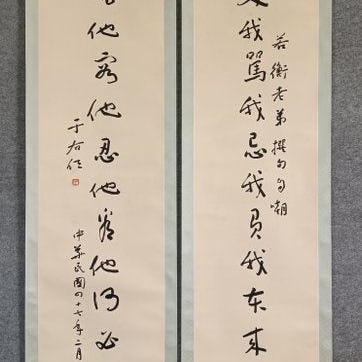 我罵我忌我負我來
若衡老弟撰句自嘲
他容他忍他他何必
于右任
中華民國四十七年二月